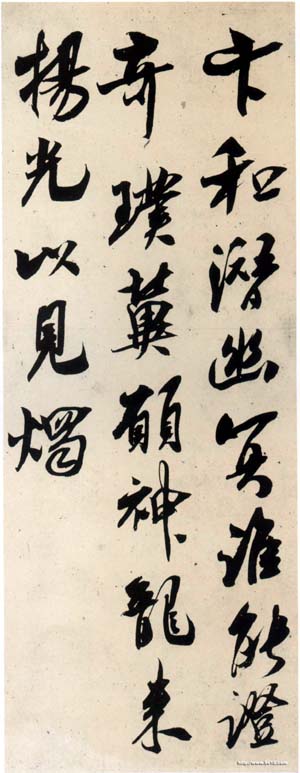 卞和潛幽冥誰能證
奇璞冀願神龍來
揚光以見燭